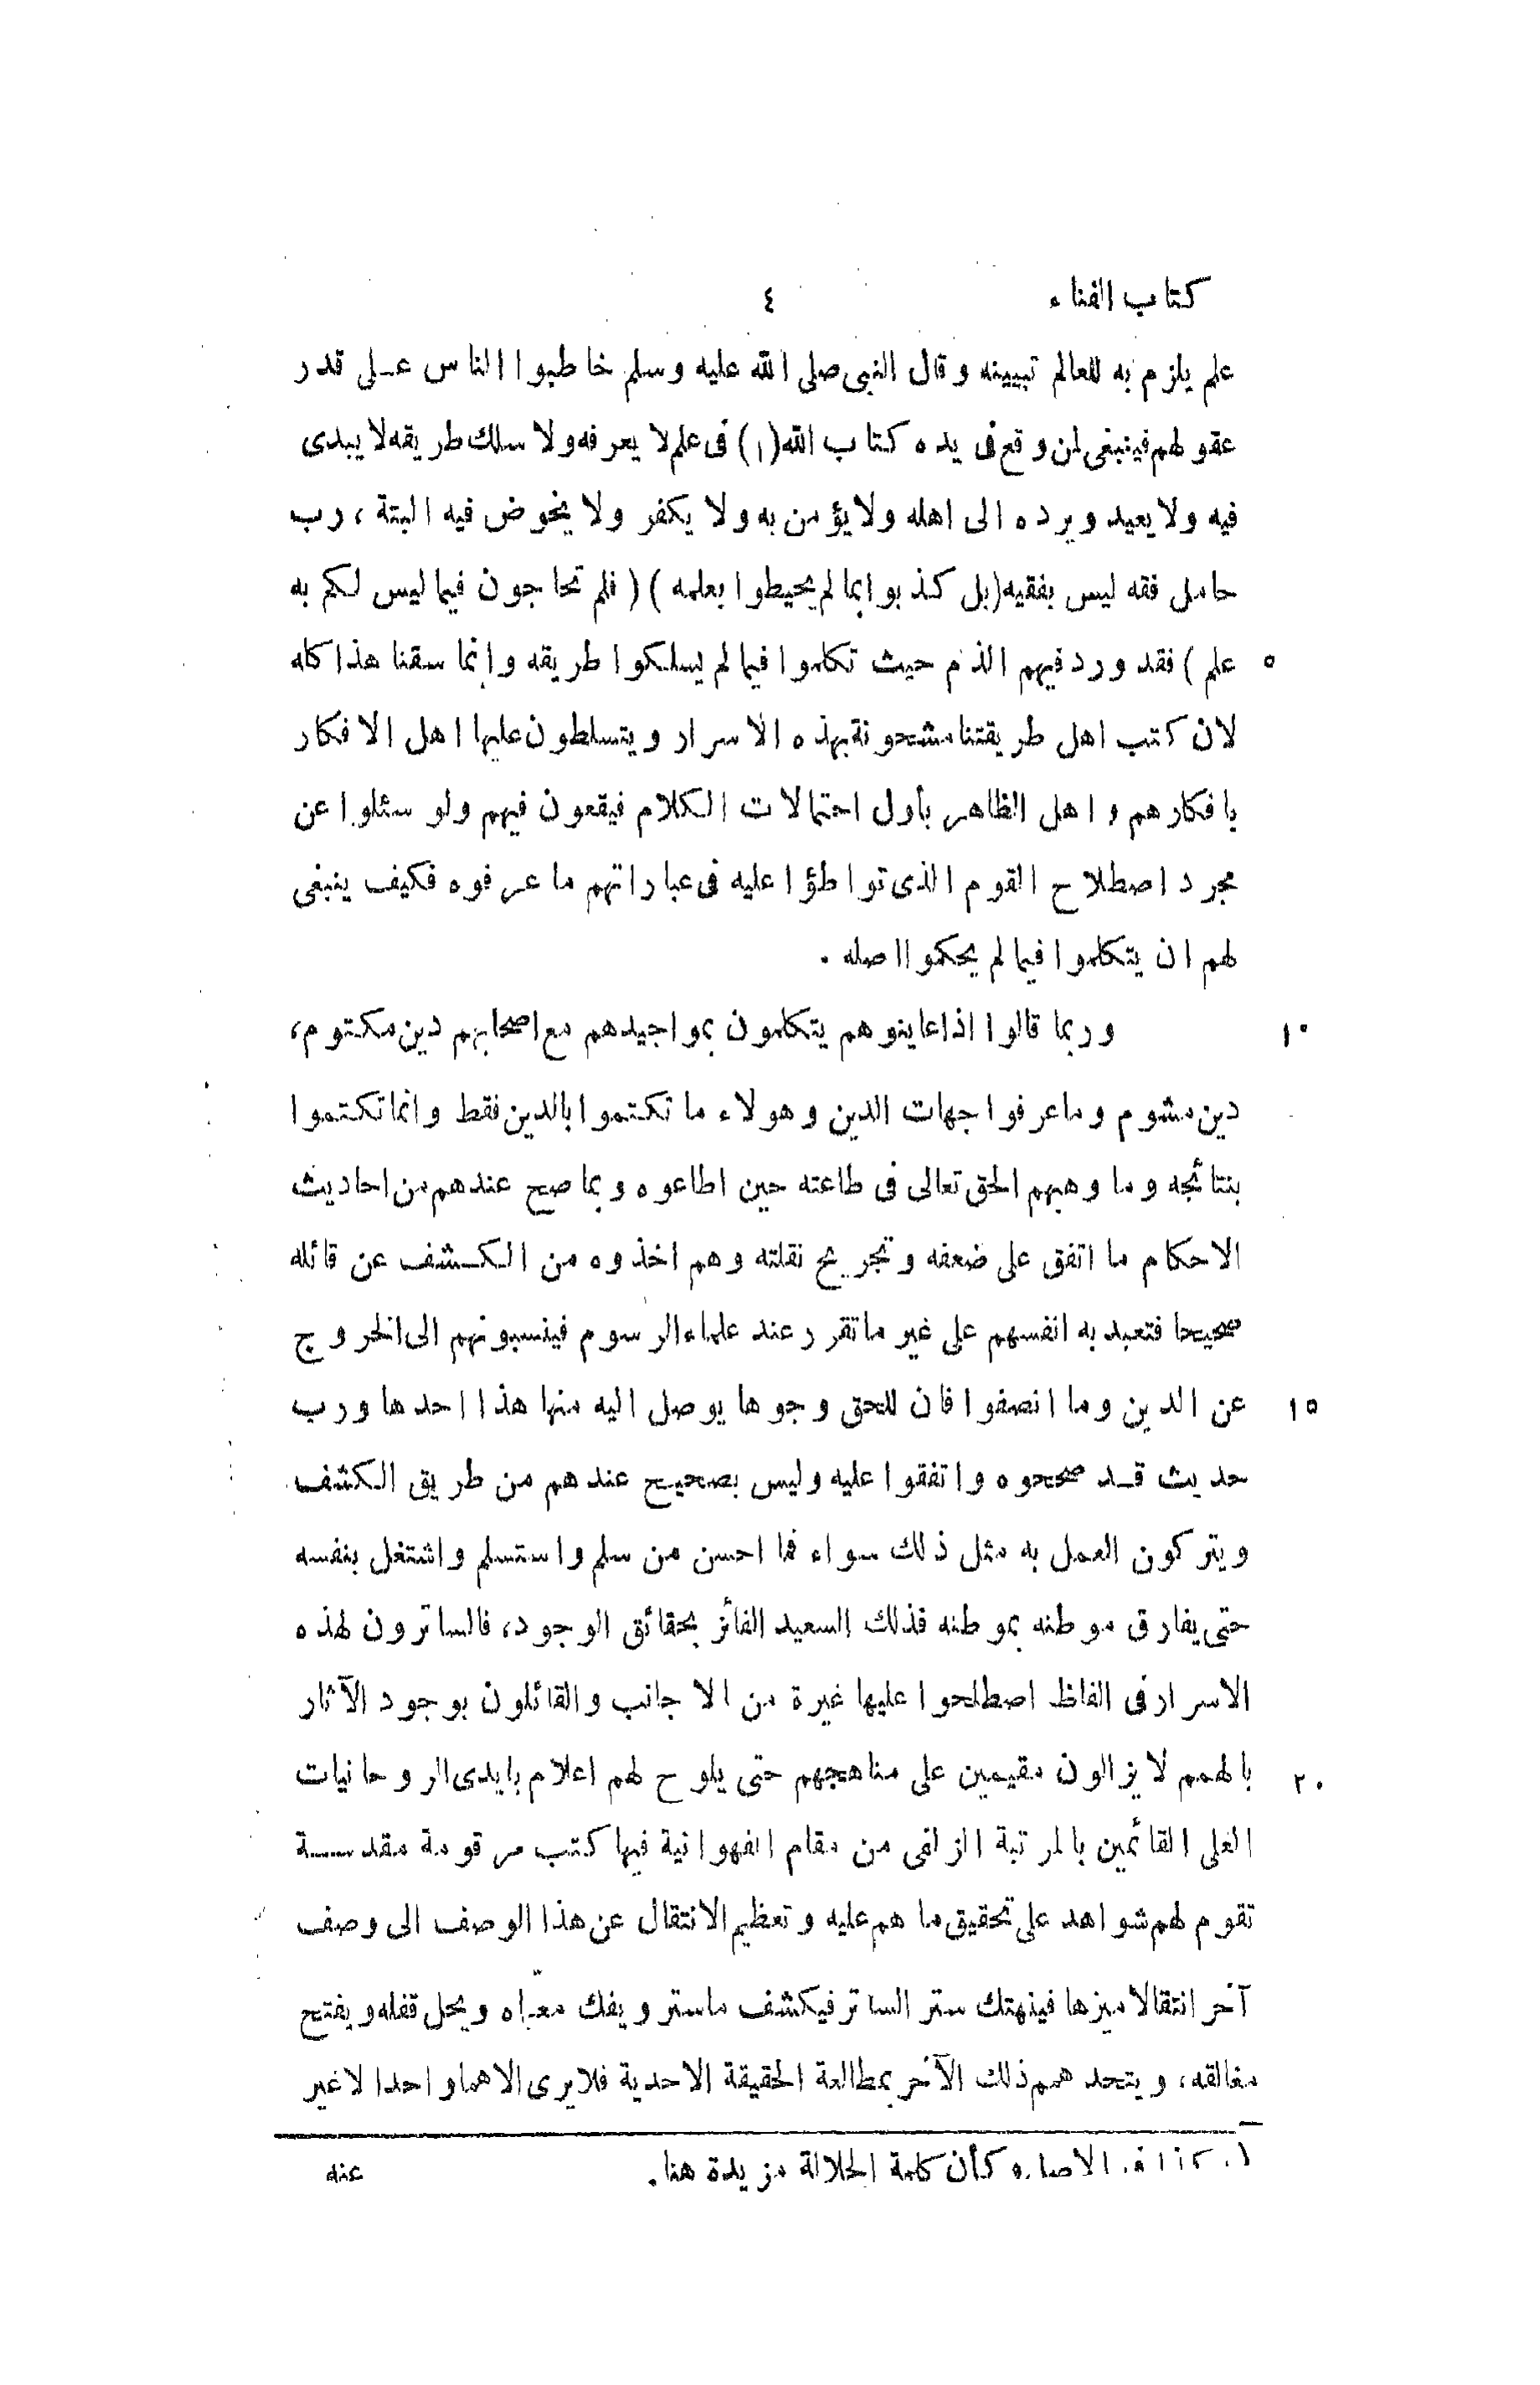 كتاب الفناء ٤
علم يلزم به للعالم تبيينه وقال النبى صلى الله عليه وسلم خاطبوا الناس على قدر
عقولهم فينبغى لمن وقع فى يده كتاب الله (١) فى علم لا يعرفه ولا سلك طريقه لا يبدى
فيه ولا يعيد ويرده الى اهله ولا يؤمن به ولا يكفر ولا يخوض فيه البتة ، رب
حامل فقه ليس بفقيه (بل كذبوا بما لم يحيطوا بعلمه) (فلم تحاجون فيما ليس لكم به
٥ علم) فقد ورد فيهم الذم حيث تكلموا فيما لم يسلكوا طريقه وانما سقنا هذا كله
لان كتب اهل طريقتنا مشحونة بهذه الاسرار ويتسلطون عليها اهل الافكار
بافكارهم واهل الظاهر بأول احتمالات الكلام فيقعون فيهم ولو سئلوا عن
مجرد اصطلاح القوم الذى تواطؤا عليه فى عباراتهم ما عرفوه فكيف ينبغى
لهم ان يتكلموا فيما لم يحكموا اصله .
١٠ وربما قالوا اذا عاينوهم يتكلمون بمواجيدهم مع اصحابهم دين مكتوم،
دين مشوم وما عرفوا جهات الدين وهولاء ما تكتموا بالدين فقط وانما تكتموا
بنتائجه وما وهبهم الحق تعالى فى طاعته حين اطاعوه وبما صح عندهم من احاديث
الاحكام ما اتفق على ضعفه وتجريح نقلته وهم اخذوه من الكشف عن قائله
صحيحا فتعبد به انفسهم على غير ما تقرر عند علماء الرسوم فينسبونهم الى الخروج
١٥ عن الدين وما انصفوا فان للحق وجوها يوصل اليه منها هذا احدها ورب
حديث قد صححوه واتفقوا عليه وليس بصحيح عندهم من طريق الكشف
ويتركون العمل به مثل ذلك سواء فما احسن من سلم واستسلم واشتغل بنفسه
حتى يفارق موطنه بموطنه فذلك السعيد الفائز بحقائق الوجود، فالساترون لهذه
الاسرار فى الفاظ اصطلحوا عليها غيرة من الاجانب والقائلون بوجود الآثار
٢٠ بالهمم لا يزالون مقيمين على مناهجهم حتى يلوح لهم اعلام بايدى الروحانيات
العلى القائمين بالمرتبة الزلفى من مقام الفهوانية فيها كتب مرقومة مقدسة
تقوم لهم شواهد على تحقيق ما هم عليه وتعظيم الانتقال عن هذا الوصف الى وصف
آخر انتقالا ميزها فينهتك ستر الساتر فيكشف ما ستر ويفك معمّاه ويحل قفله ويفتح
مغالقه، ويتحد همم ذلك الآخر بمطالعة الحقيقة الاحدية فلا يرى الا هما واحدا لا غير
١ـ كذا فى الاصل وكأن كلمة الجلالة مزيدة هنا. عنه